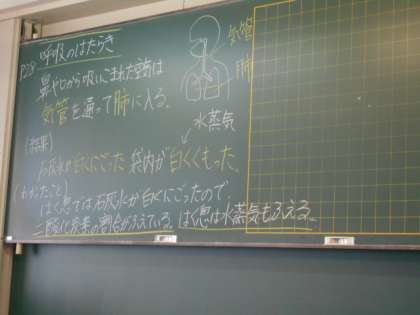 P28 呼吸のはたらき
鼻や口から吸いこまれた空気は
気管を通って肺に入る。
気管
肺
水蒸気
(結果)
石灰水が白くにごった 袋内が白くくもった。
(わかったこと)
はく息では石灰水が白くにごったので、
二酸化炭素の割合がふえている。はく息は水蒸気もふえる。